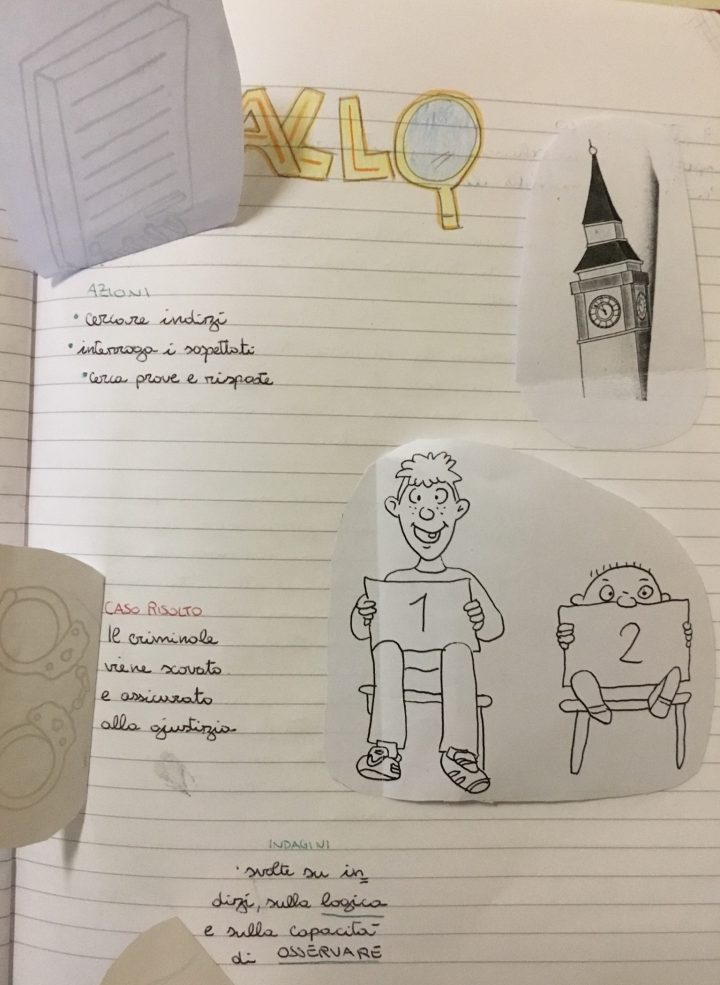 ALLO
AZIONI
• cercare indizi
• interroga i sospettati
• cerca prove e risposte
1
2
CASO RISOLTO
Il criminale
viene scovato
e assicurato
alla giustizia
INDAGINI
• svolte su in=
dizi, sulla logica
e sulla capacità
di OSSERVARE